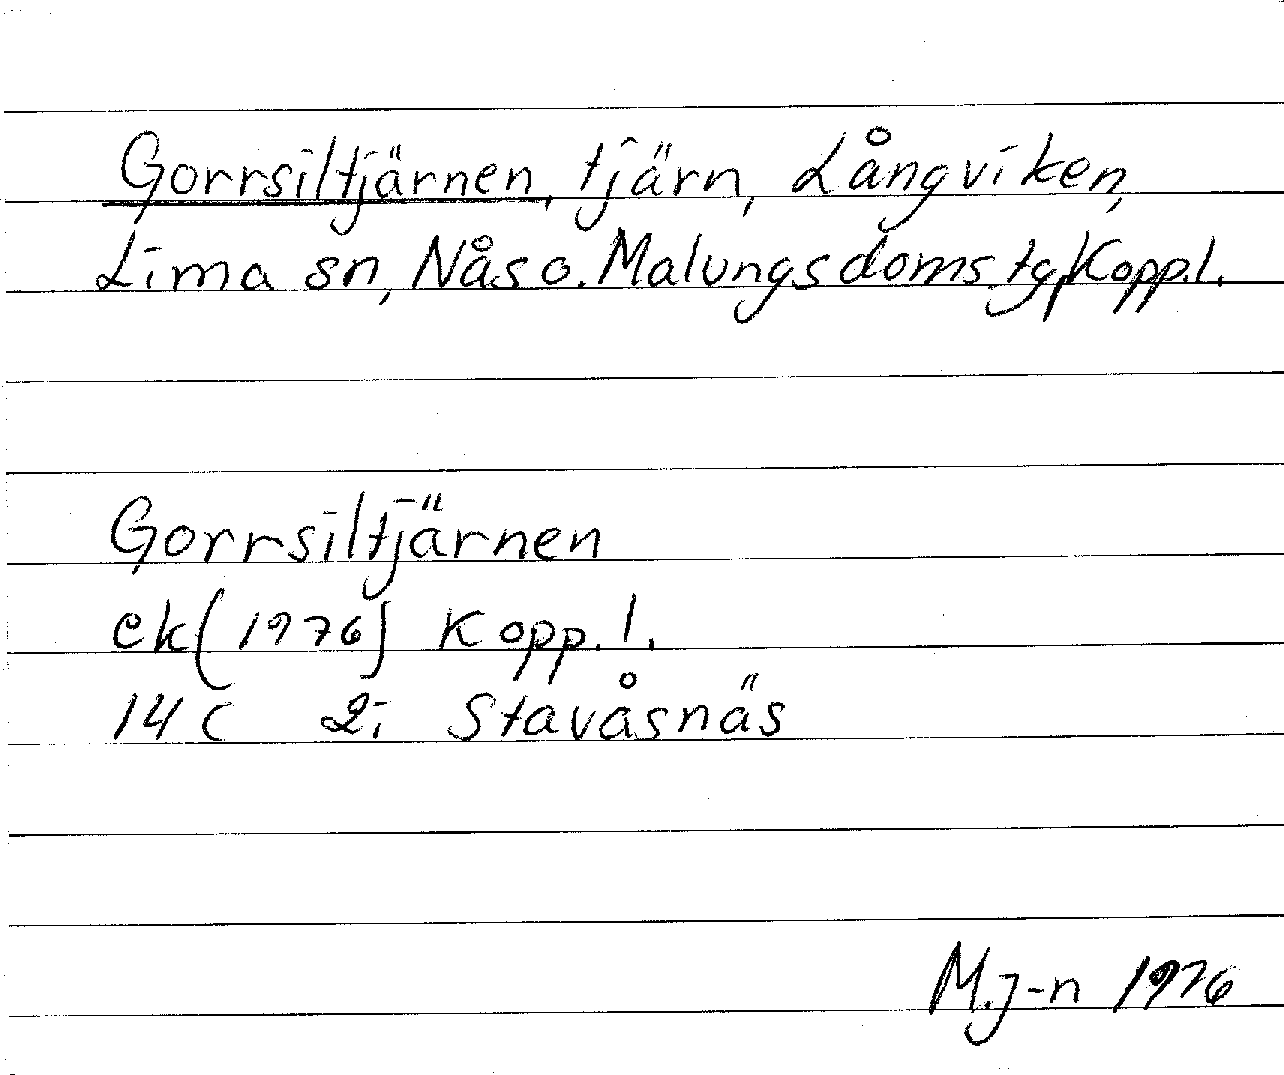 Gorrsiltjärnen, tjärn, Långviken,
Lima sn, Nås o. Malungs doms.tg, Kopp.l.
Gorrsiltjärnen
ek(1976) Kopp. l.
14 C 2i Stavåsnäs
M.J-n 1976